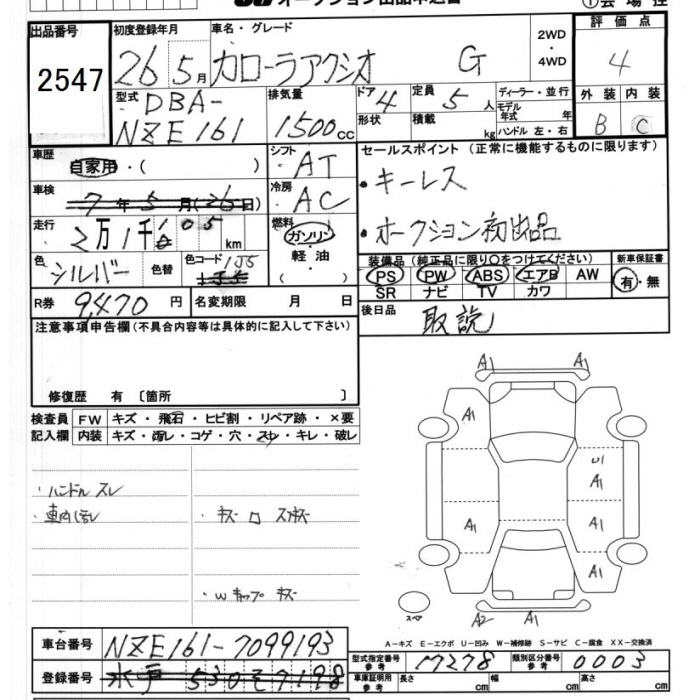 オークション出品申込書
①会場控
出品番号 初度登録年月 車名・グレード 2WD・4WD 評価点
2547 26年5月 カローラアクシオ G 4
型式 排気量 ドア 定員 ディーラー・並行 外装 内装
DBA-NZE161 1500cc 4 5人 モデル年式 年 B C
形状 積載 kg ハンドル 左・右
車歴 シフト セールスポイント(正常に機能するものに限ります)
自家用・( ) AT ・キーレス
車検 冷房
7年5月(26日) AC ・オークション初出品
走行 燃料
2万1千105km ガソリン・軽油・( )
色 色替 色コード 装備品(純正品に限り○をつけてください) 新車保証書
シルバー 1J5 PS PW ABS エアB AW 有・無
SR ナビ TV カワ
R券 9,470円 名変期限 月 日 後日品 取説
注意事項申告欄(不具合内容等は具体的に記入して下さい)
修復歴 有 〔箇所 〕
検査員 FW キズ・飛石・ヒビ割・リペア跡・×要
記入欄 内装 キズ・汚レ・コゲ・穴・スレ・キレ・破レ
・ハンドルスレ
・車内汚レ ・キズロスリキズ
・Wキャップキズ
A1 A1
A1
U1
A1
A1 A1
A1
スペア A2 A1
A-キズ E-エクボ U-凹み W-補修跡 S-サビ C-腐食 XX-交換済
車台番号 NZE161-7099193
型式指定番号 参考 17278 類別区分番号 参考 0003
登録番号 水戸 530 そ 7198
車庫証明用 参考 長さ cm 幅 cm 高さ cm